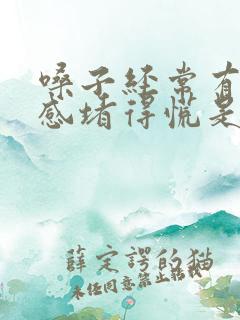 嗓子经常有
感堵得慌是
薛定谔的猫
未经同意禁止转载